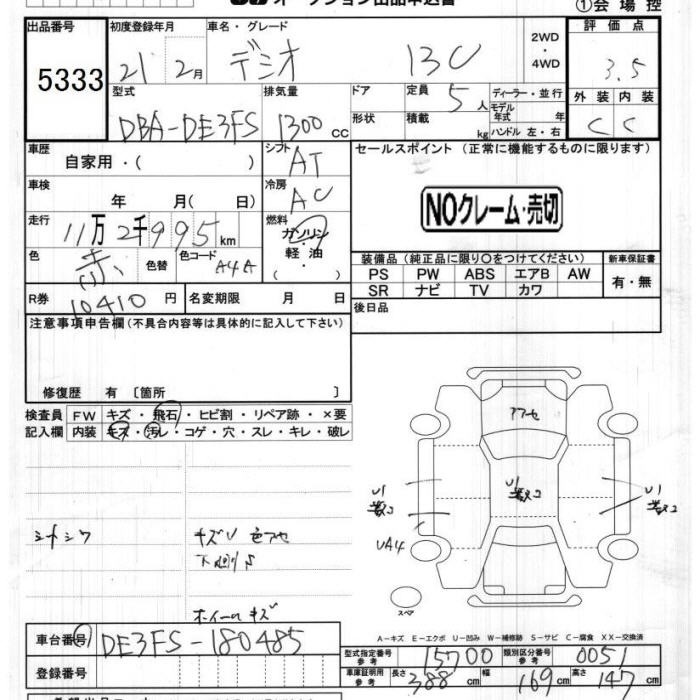 オークション出品申込書
①会場控
出品番号 5333
初度登録年月 21 2月
車名・グレード デミオ 13C
2WD・4WD
評価点 3.5
型式 DBA-DE3FS
排気量 1300 cc
ドア
形状
定員 5 人
積載 kg
ディーラー・並行
モデル年式 年
ハンドル 左・右
外装 C
内装 C
車歴 自家用・( )
シフト AT
車検 年 月( 日)
冷房 AC
走行 11万2千995km
燃料 ガソリン・軽油・( )
色 赤 色替 色コード A4A
R券 10410 円
名変期限 月 日
セールスポイント (正常に機能するものに限ります)
NOクレーム・売切
装備品(純正品に限り○をつけてください)
新車保証書
PS PW ABS エアB AW
SR ナビ TV カワ
有・無
後日品
注意事項申告欄(不具合内容等は具体的に記入して下さい)
修復歴 有〔箇所 〕
検査員記入欄
FW キズ・飛石・ヒビ割・リペア跡・×要
内装 キズ・汚レ・コゲ・穴・スレ・キレ・破レ
アフセ
U1
U1
U1
UA4
シートシワ
キズU 色アセ
ホイールキズ
スペア
A−キズ E−エクボ U−凹み W−補修跡 S−サビ C−腐食 XX−交換済
車台番号 DE3FS-180485
登録番号
型式指定番号 参考 15700
類別区分番号 参考 0051
車庫証明用 参考 長さ 388 cm 幅 169 cm 高さ 147 cm